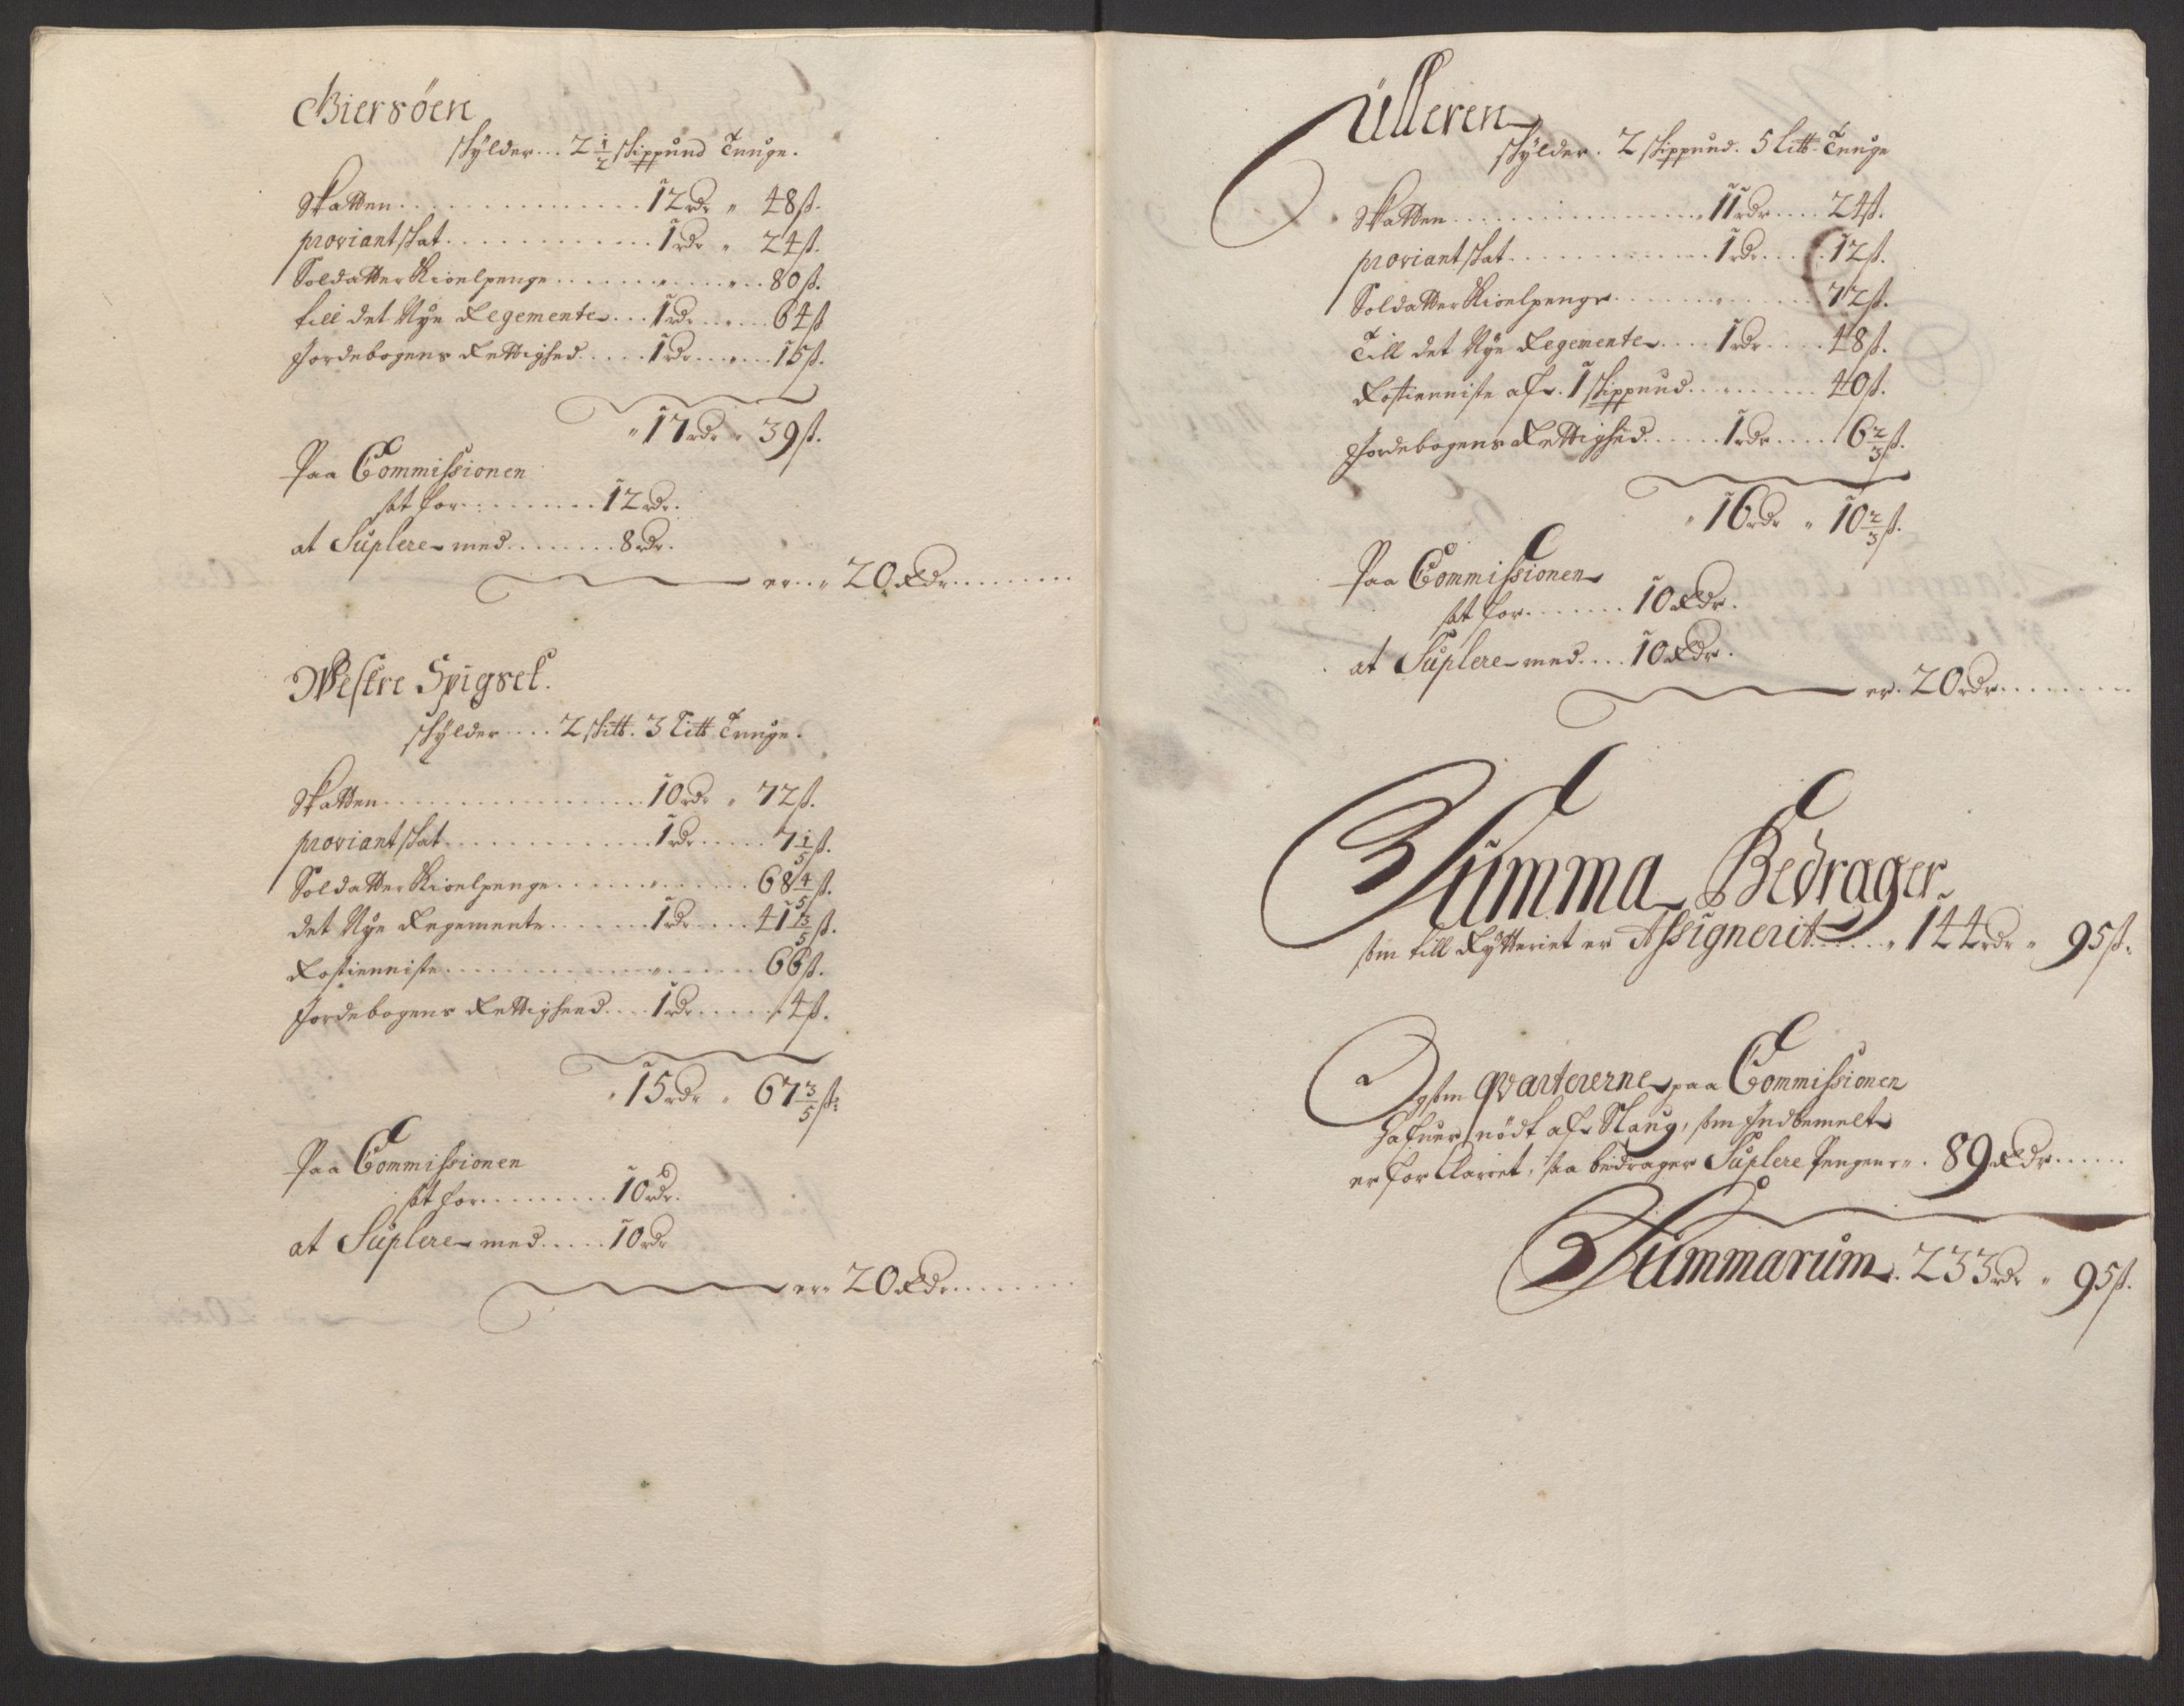 Biersöen
skylder... 2 1/2 skippund Tunge.
Skatten ............... 12 rdr " 48 ß.
proviantskat ............ 1 rdr " 24 ß.
Soldatter Kioelpenge ............ 80 ß.
till det Nye Regemente ... 1 rdr ..... 64 ß
Jordebogens Rettighed ..... 1 rdr ..... 15 ß.
" 17 rdr " 39 ß.
Paa Commissionen
sat for ......... 12 rdr.
at Suplere med ........ 8 rdr.
er " 20 Rdr ........
Westre Spigset.
skylder .... 2 skitt. 3 Litt Tunge.
Skatten ................ 10 rdr " 72 ß.
proviantskat ............ 1 rdr ..... 7 1/5 ß.
Soldatter Kioelpenge ............ 68 4/5 ß.
det Nye Regemente ....... 1 rdr .... 41 3/5 ß.
Rostienniste ................. 66 ß.
Jordebogens Rettigheed .... 1 rdr ...... 4 ß.
" 15 rdr " 67 3/5 ß:
Paa Commissionen
sat for ......... 10 rdr.
at Suplere med ..... 10 rdr
er " 20 Rdr ........
Ülleren
skylder. 2 skippund. 5 Litt. Tunge
Skatten ................ 11 rdr .... 24 ß.
proviantskat ............. 1 rdr .... 12 ß.
Soldatter Kioelpenge ............ 72 ß.
Till det Nye Regemente .... 1 rdr .... 48 ß.
Rostienniste af. 1 skippund ......... 40 ß.
Jordebogens Rettighed ...... 1 rdr .... 6 2/3 ß.
" 16 rdr " 10 2/3 ß.
Paa Commissionen
sat for ....... 10 Rdr.
at Suplere med .... 10 Rdr.
er. 20 rdr ........
Summa Bedrager
som till Rytteriet er Assignerit ..... " 144 rdr " 95 ß.
Og som qvartererne paa Commissionen
hafuer nödt af Slaug, som Indbemelte
er forklaret, saa bedrager Suplere Pengene . 89 Rdr .....
Summarum. 233 rdr " 95 ß.